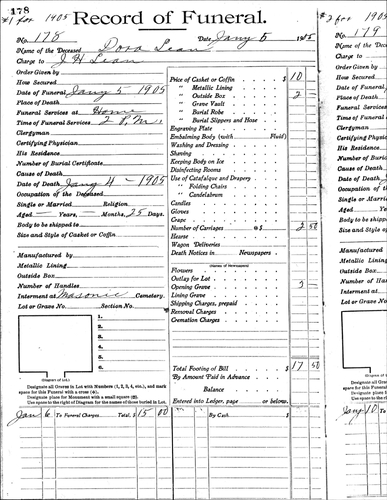 178
#1 for 1905
Record of Funeral.
No. 178 Date Jany 5 1905
Name of the Deceased Dora Lean
Charge to J H Lean
Order Given by
How Secured
Date of Funeral Jany 5 1905
Place of Death
Funeral Services at Home
Time of Funeral Services 2 P.M.
Clergyman
Certifying Physician
His Residence
Number of Burial Certificate
Cause of Death
Date of Death Jany 4 - 1905
Occupation of the Deceased
Single or Married Religion
Aged — Years, — Months, 25 Days
Body to be shipped to
Size and Style of Casket or Coffin
Manufactured by
Metallic Lining
Outside Box
Number of Handles
Interment at Masonic Cemetery.
Lot or Grave No. Section No.
1.
2.
3.
4.
5.
6.
(Diagram of Lot.)
Designate all Graves in Lot with Numbers (1, 2, 3, 4, etc.), and mark
space for this Funeral with a cross (x).
Designate place for Monument with a small square.
Use space to the right of Diagram for the names of those buried in Lot.
Price of Casket or Coffin $ 10
" Metallic Lining
" Outside Box 2 —
" Grave Vault
" Burial Robe
" Burial Slippers and Hose
Engraving Plate
Embalming Body (with Fluid)
Washing and Dressing
Shaving
Keeping Body on Ice
Disinfecting Rooms
Use of Catafalque and Drapery
" Folding Chairs
" Candelabrum
Candles
Gloves
Crape
Number of Carriages @ $ 2 50
Hearse
Wagon Deliveries
Death Notices in Newspapers
(Names of Newspapers)
Flowers
Outlay for Lot
Opening Grave 3 —
Lining Grave
Shipping Charges, prepaid
Removal Charges
Cremation Charges
Total Footing of Bill $ 17 50
By Amount Paid in Advance
Balance
Entered into Ledger, page or below.
Jan 6 To Funeral Charges Total, $ 15 00 By Cash $
#2 for 190
179
No.
Name of the
Charge to
Order Given
How Secured
Date of Fun
Place of Dea
Funeral Serv
Time of Fune
Clergyman
Certifying P
His Residenc
Number of B
Cause of Dea
Date of Deat
Occupation of
Single or Mar
Aged
Body to be sh
Size and Styl
Manufactured
Metallic Lini
Outside Box
Number of H
Interment at
Lot or Grave
Designate al
space for this F
Designate pla
Use space to t
Jany 10